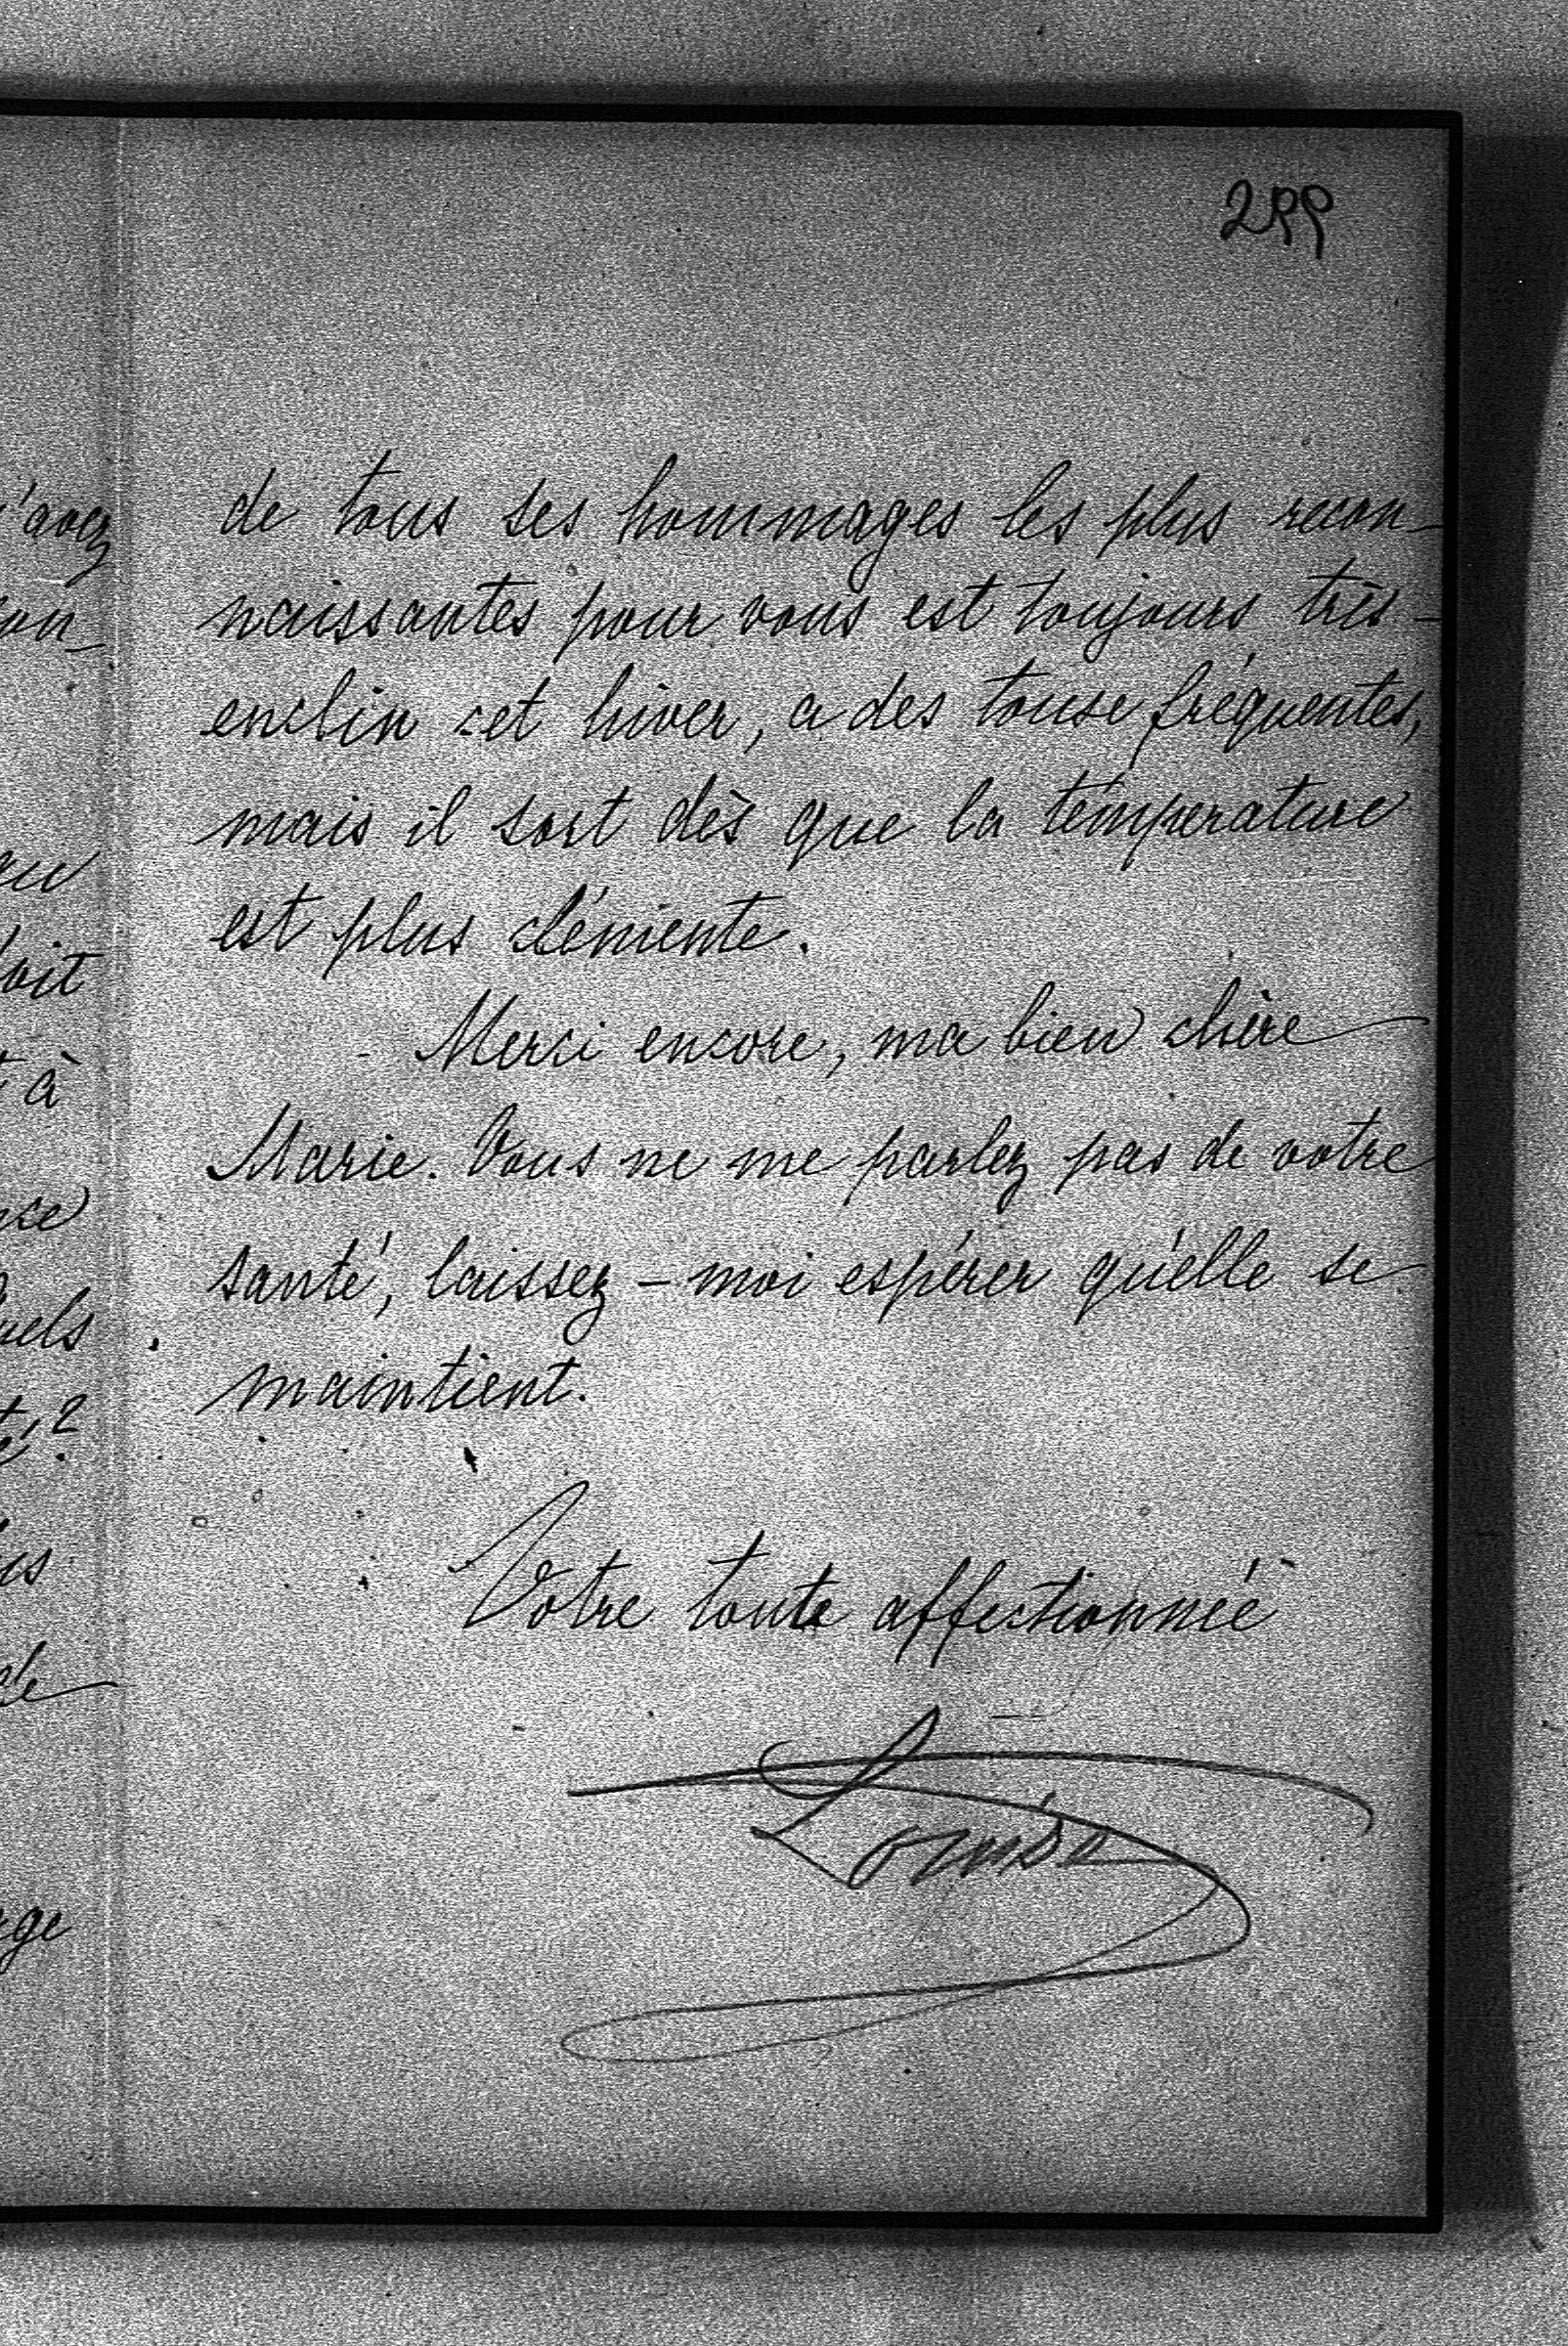 299
de tous ses hommages les plus recon-
naissantes pour vous est toujours très-
enclin cet hiver, a des touse fréquentes,
mais il sort dès que la température
est plus clémente.
Merci encore, ma bien chère
Marie. Vous ne me parlez pas de votre
santé, laissez-moi espérer qu'elle se
maintient.
Votre toute affectionnée
Louise